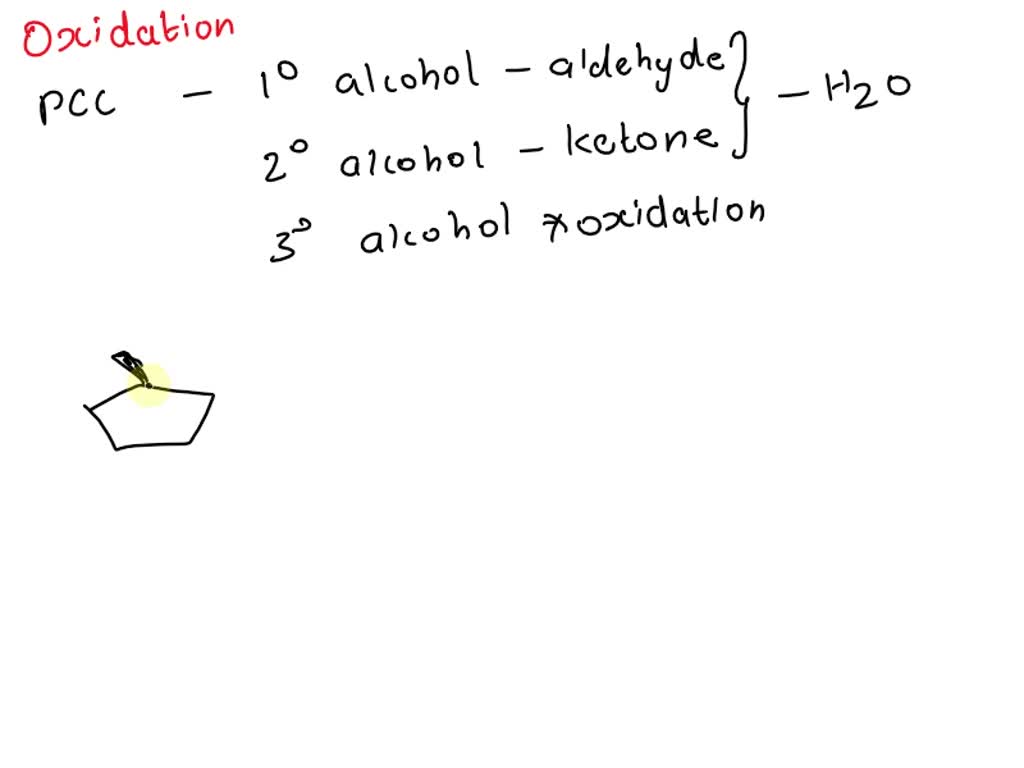 Oxidation
PCC - 1° alcohol - aldehyde } - H2O
2° alcohol - ketone
3° alcohol × oxidation